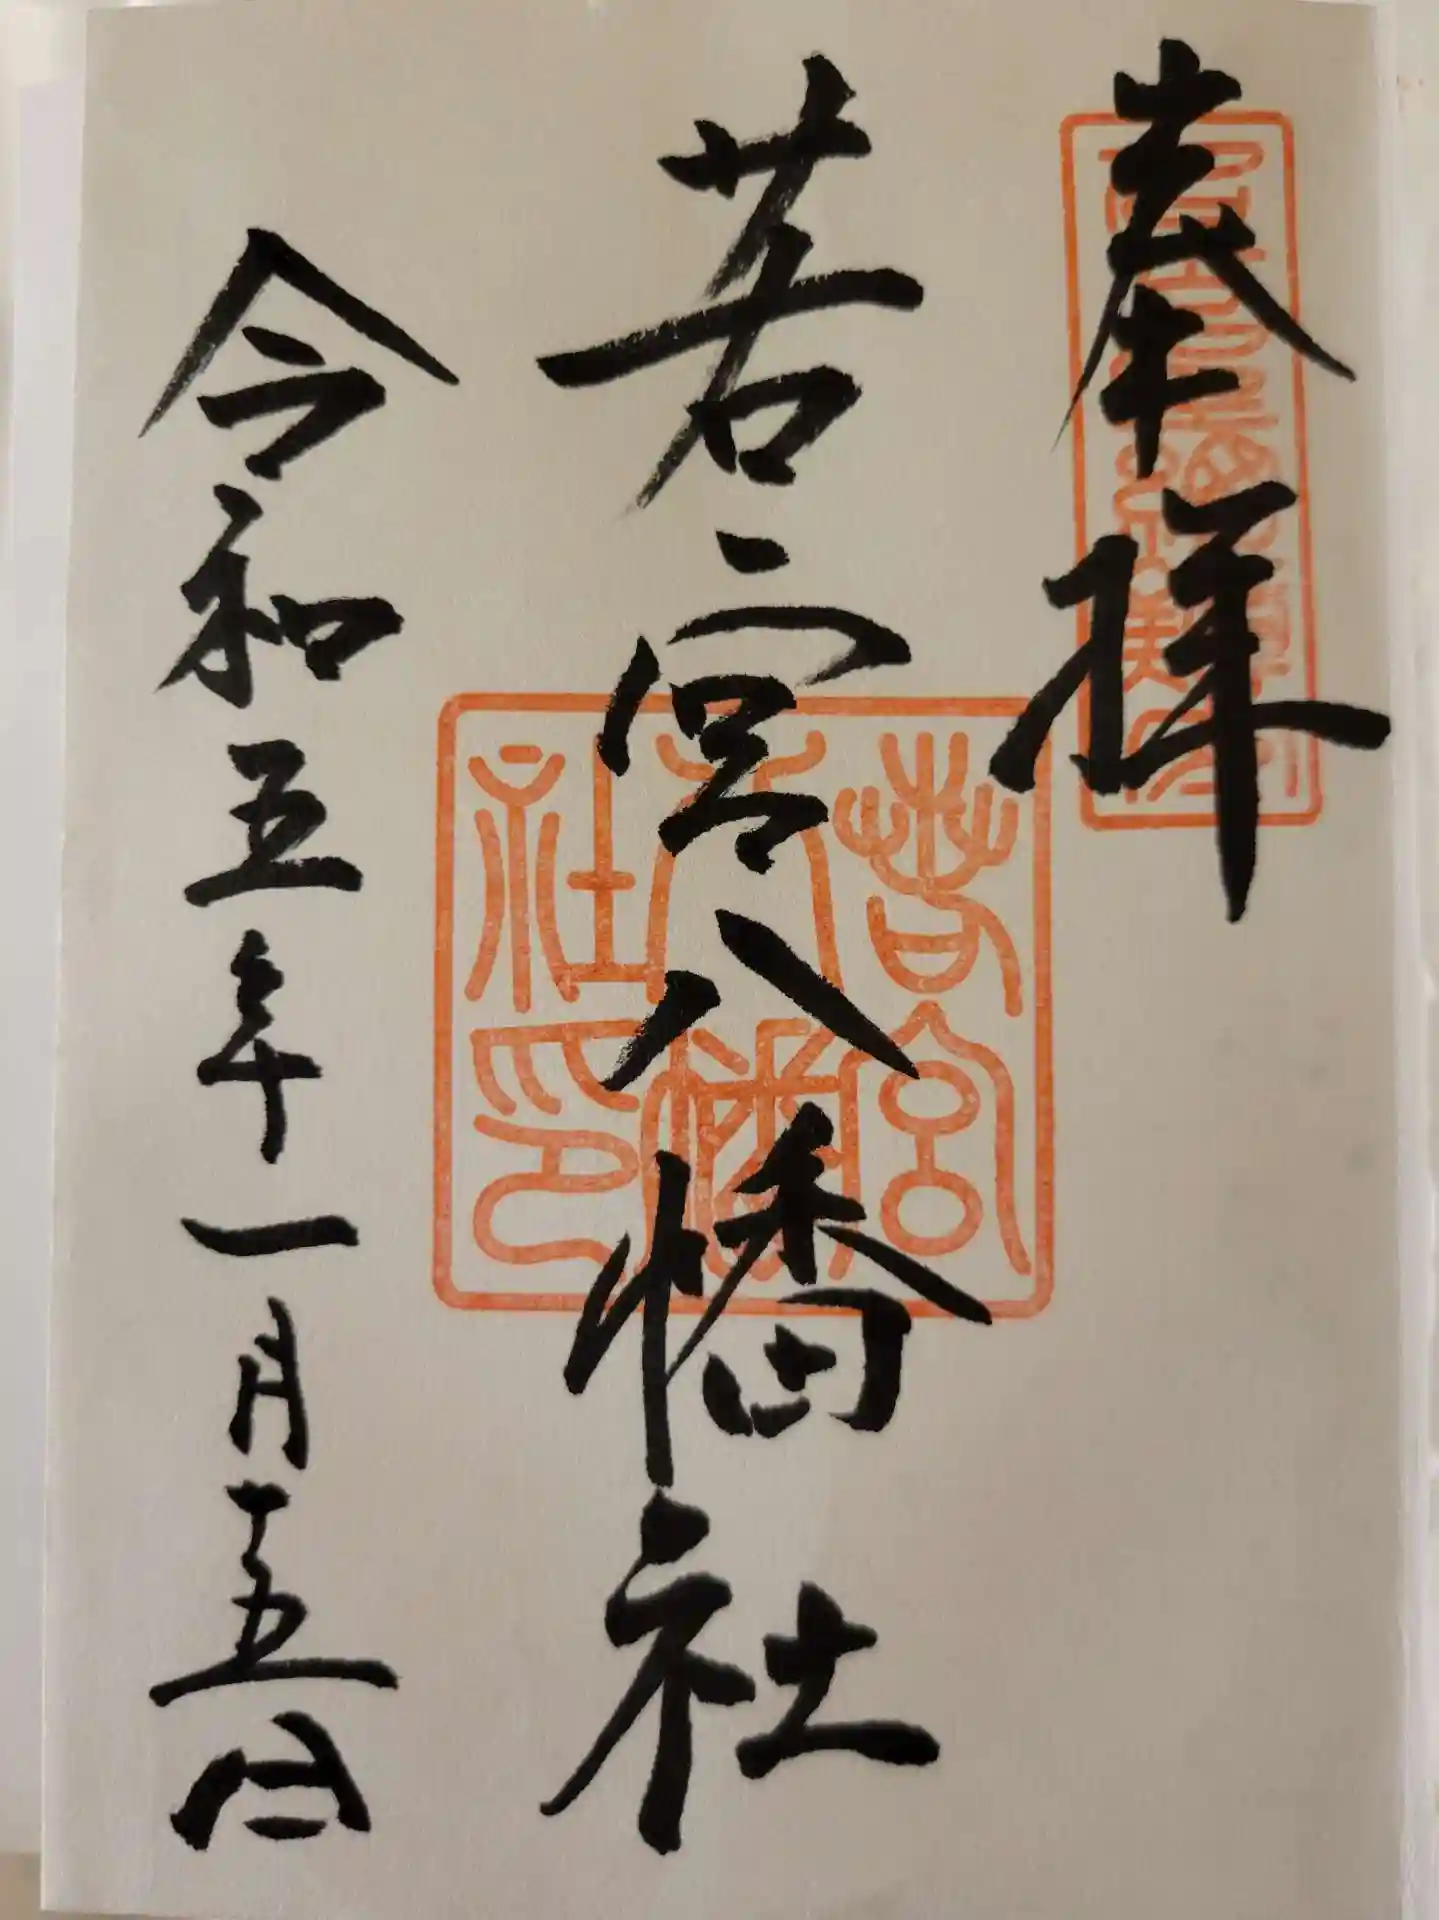 奉拝
若宮八幡社
令和五年一月十五日
若宮
八幡
社印